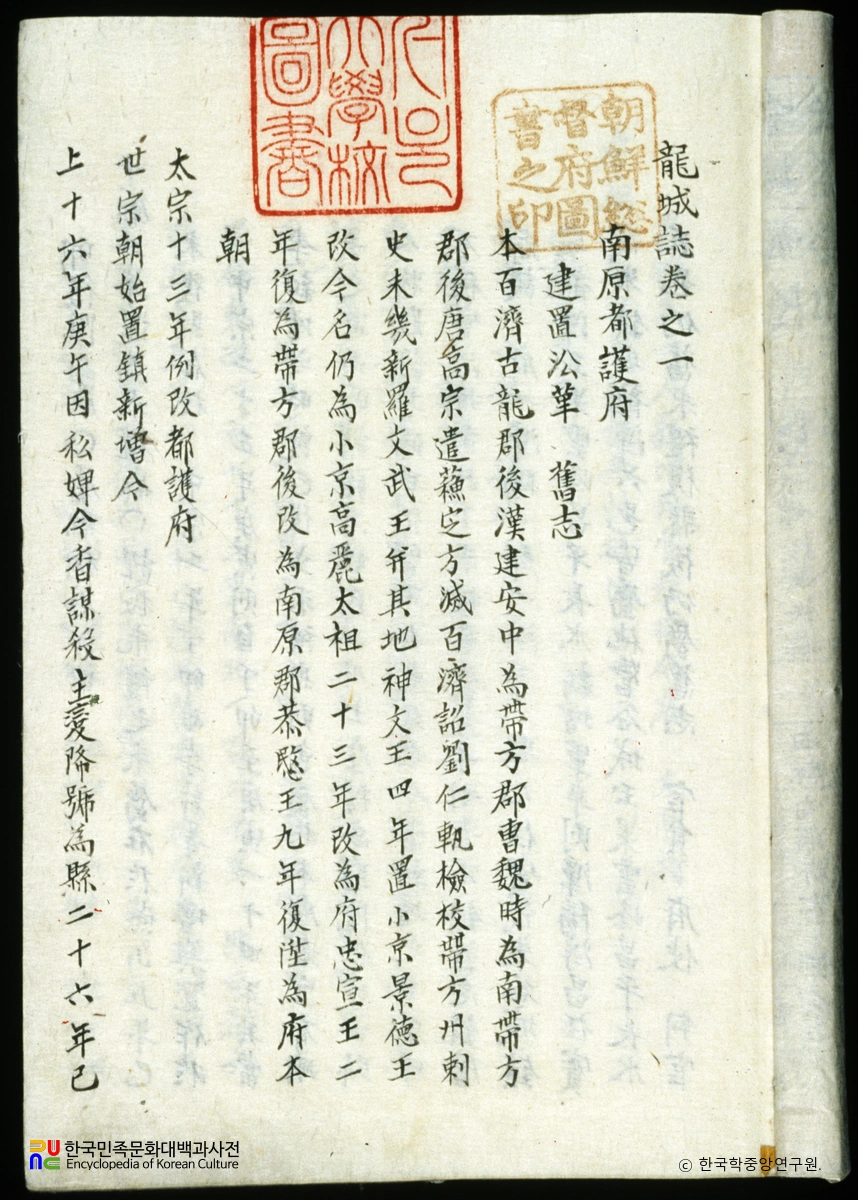 龍城誌卷之一
南原都護府
建置沿革 舊志
本百濟古龍郡後漢建安中為帶方郡曺魏時為南帶方
郡後唐高宗遣蘇㝎方滅百濟詔劉仁軌檢校帶方州刺
史未幾新羅文武王并其地神文王四年置小京景德王
改今名仍為小京高麗太祖二十三年改為府忠宣王二
年復為帶方郡後改為南原郡恭愍王九年復陞為府本
朝
太宗十三年例改都護府
世宗朝始置鎮新增今
上十六年庚午因私婢今香謀殺主
降號為縣二十六年己
朝鮮総
督府圖
書之印
大學校
圖書
한국민족문화대백과사전
Encyclopedia of Korean Culture
© 한국학중앙연구원.